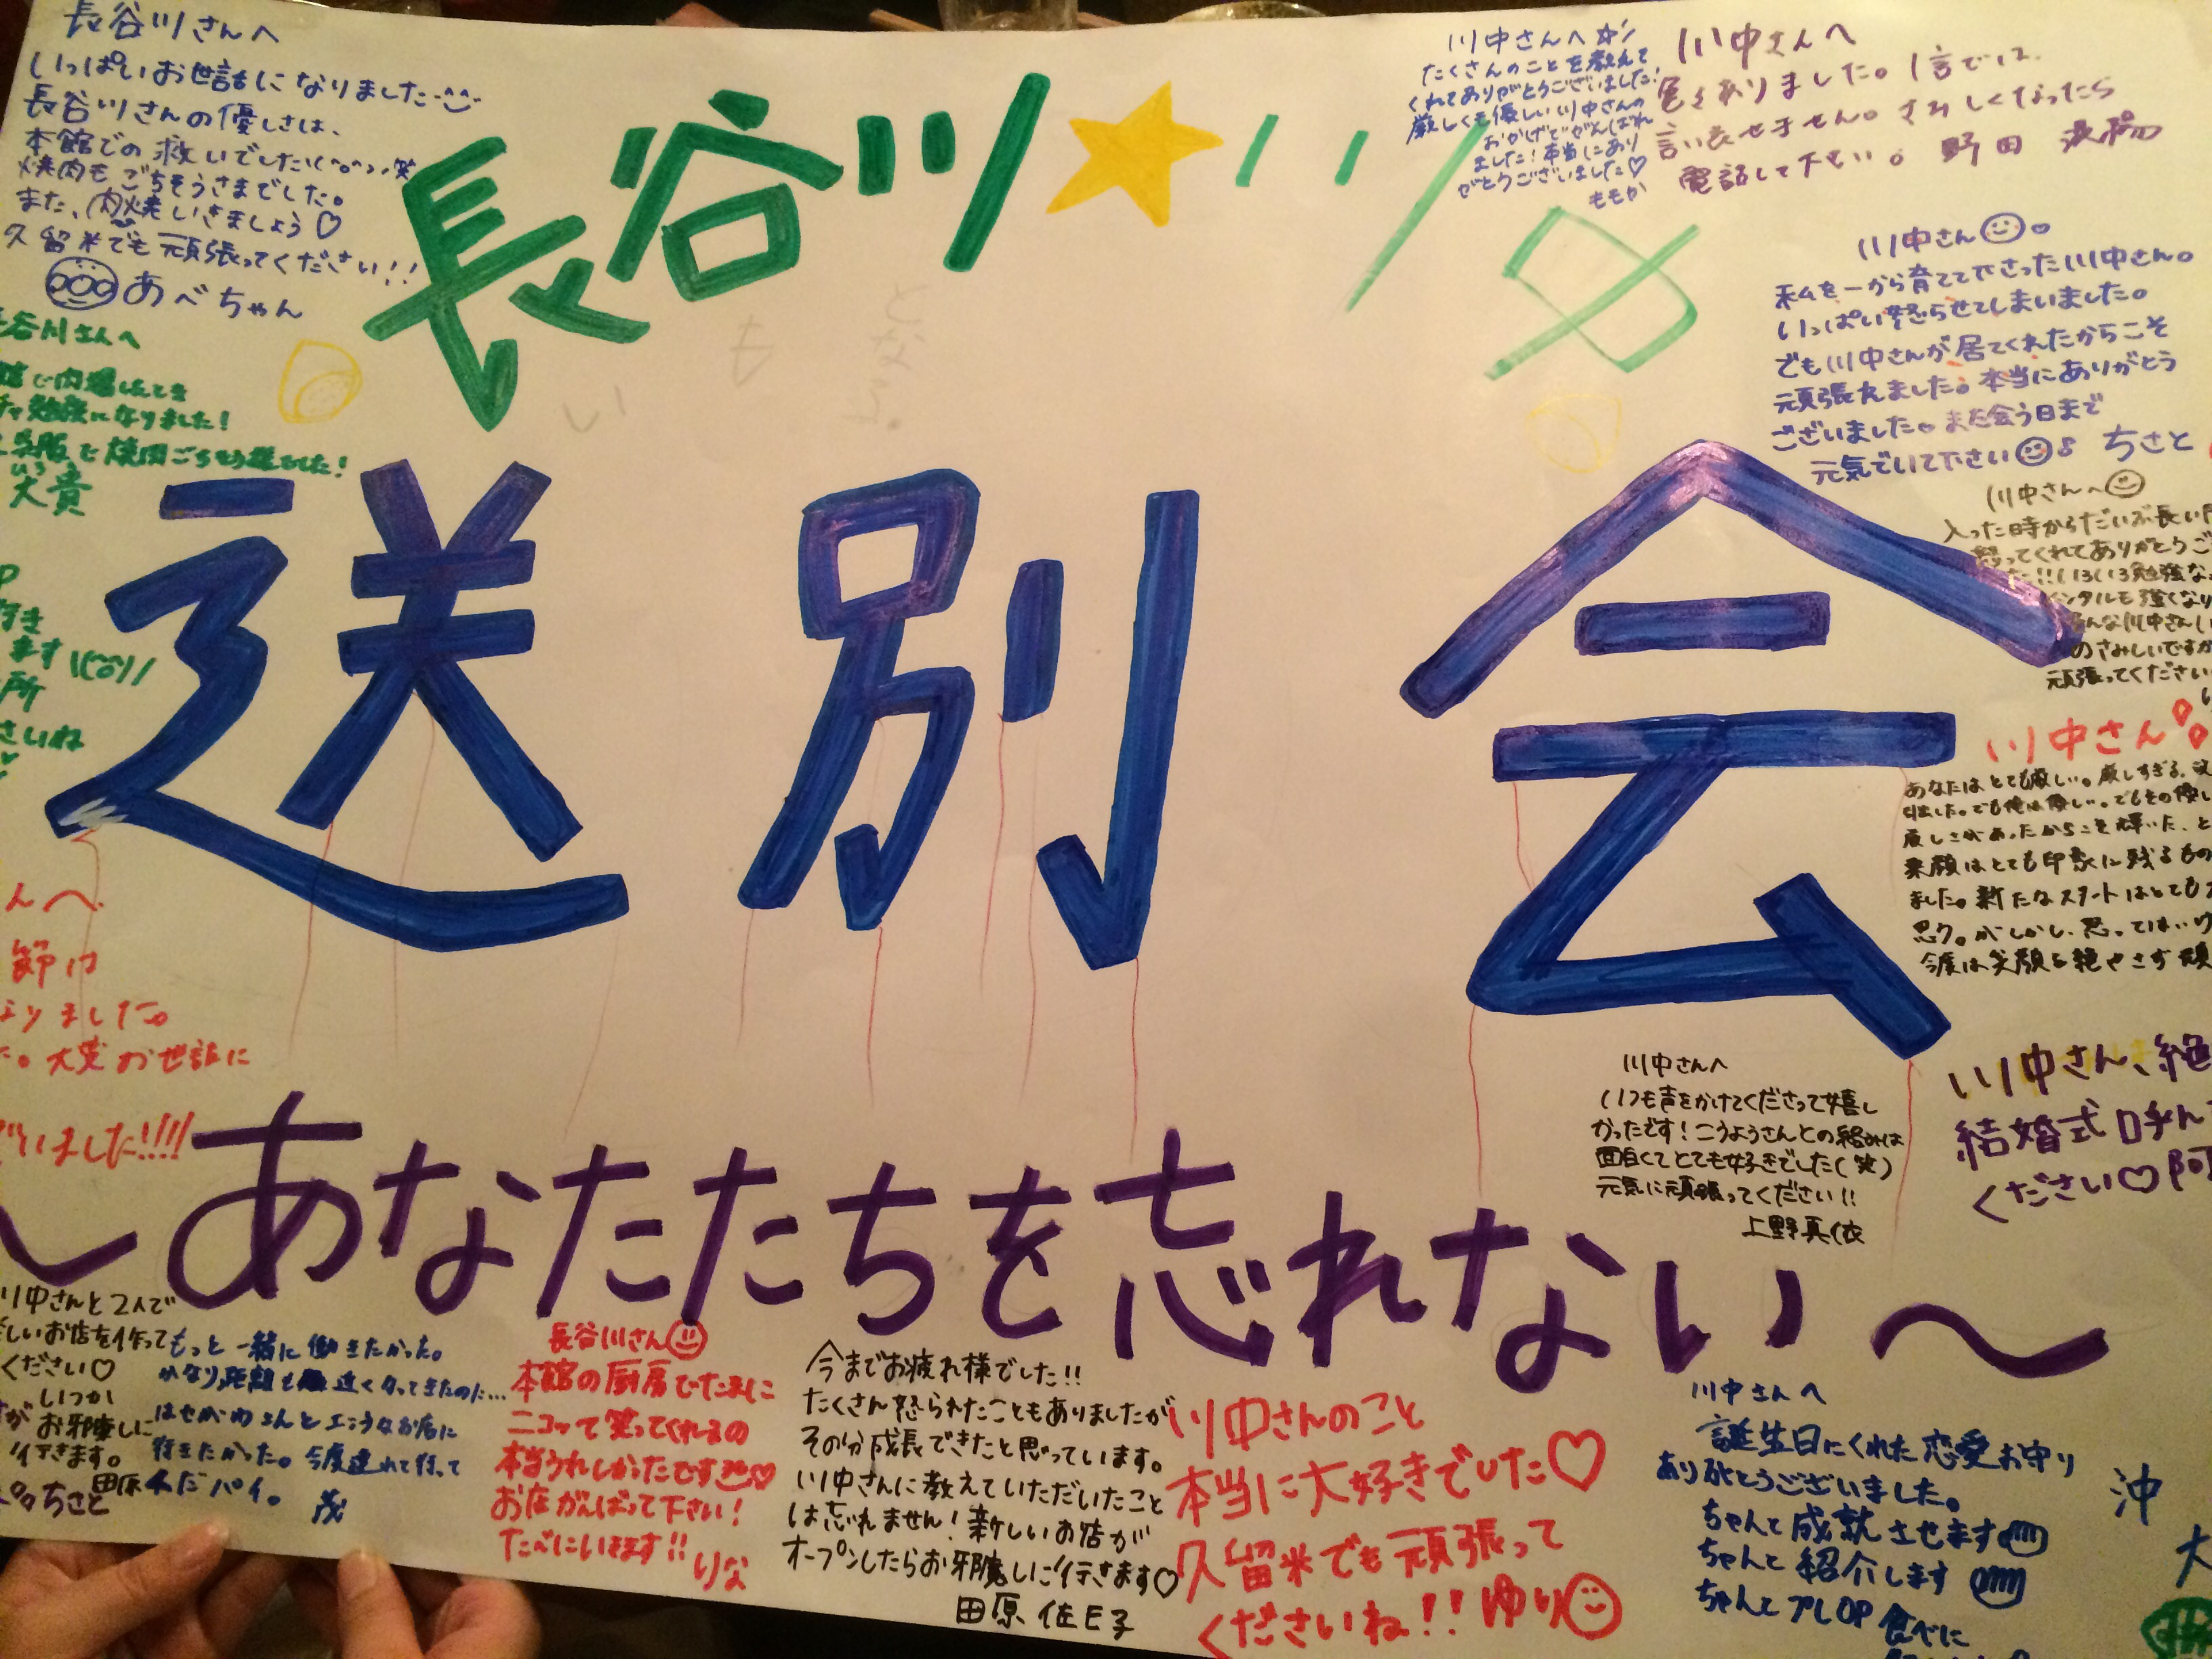 長谷川★川中
送別会
〜あなたたちを忘れない〜
長谷川さんへ
いっぱいお世話になりました
長谷川さんの優しさは、
本館での救いでした
焼肉もごちそうさまでした。
また、肉焼しいきましょう♡
久留米でも頑張ってください!!
あべちゃん
谷川さんへ
勉強になりました!
大貴
ます
所
さいね
んへ
節は
なりました。
大変お世話に
いました!!!!
川中さんへ☆
たくさんのことを教えて
くれてありがとうございました!
厳しくも優しい川中さんの
おかげでがんばれ
ました!本当にあり
がとうございました♡
ももか
川中さんへ
色々ありました。1言では、
言い表せません。さみしくなったら
電話して下さい。野田
川中さん
私を一から育てて下さった川中さん。
いっぱい怒らせてしまいました。
でも川中さんが居てくれたからこそ
頑張れました。本当にありがとう
ございました。また会う日まで
元気でいて下さい♪ ちさと
川中さんへ
入った時からだいぶ長い
怒ってくれてありがとうご
!!いろいろ勉強な
メンタルも強くなり
そんな川中さん
のさみしいですが
頑張ってください
川中さん
あなたはとても厳しい。厳しすぎる。
でも俺は優しい。でもその優し
厳しさがあったからこそ輝いた、と
素顔はとても印象に残るもの
ました。新たなスタートはとても
思う。がしかし、思っては
今度は笑顔を絶やさず頑
川中さんへ
いつも声をかけてくださって嬉し
かったです!こうようさんとの絡みは
面白くてとても好きでした(笑)
元気に頑張ってください!!
上野真依
川中さん、絶
結婚式呼ん
ください♡阿
川中さんと2人で
しいお店を作って
ください♡
いつか
お邪魔しに
行きます。
ちさと
もっと一緒に働きたかった。
かなり距離も近くなってきたのに…
はせがわさんとエこうなお店に
行きたかった。今度連れて行って
茂
長谷川さん
本館の厨房でたまに
ニコッて笑ってくれるの
本当うれしかったです♡
お店がんばって下さい!
たべにいきます!! りな
今までお疲れ様でした!!
たくさん怒られたこともありましたが
その分成長できたと思っています。
川中さんに教えていただいたこと
は忘れません!新しいお店が
オープンしたらお邪魔しに行きます♡
田原佐E子
川中さんのこと
本当に大好きでした♡
久留米でも頑張って
くださいね!! ゆり
川中さんへ
誕生日にくれた恋愛お守り
ありがとうございました。
ちゃんと成就させます
ちゃんと紹介します
ちゃんとプレOP食べに
沖
大